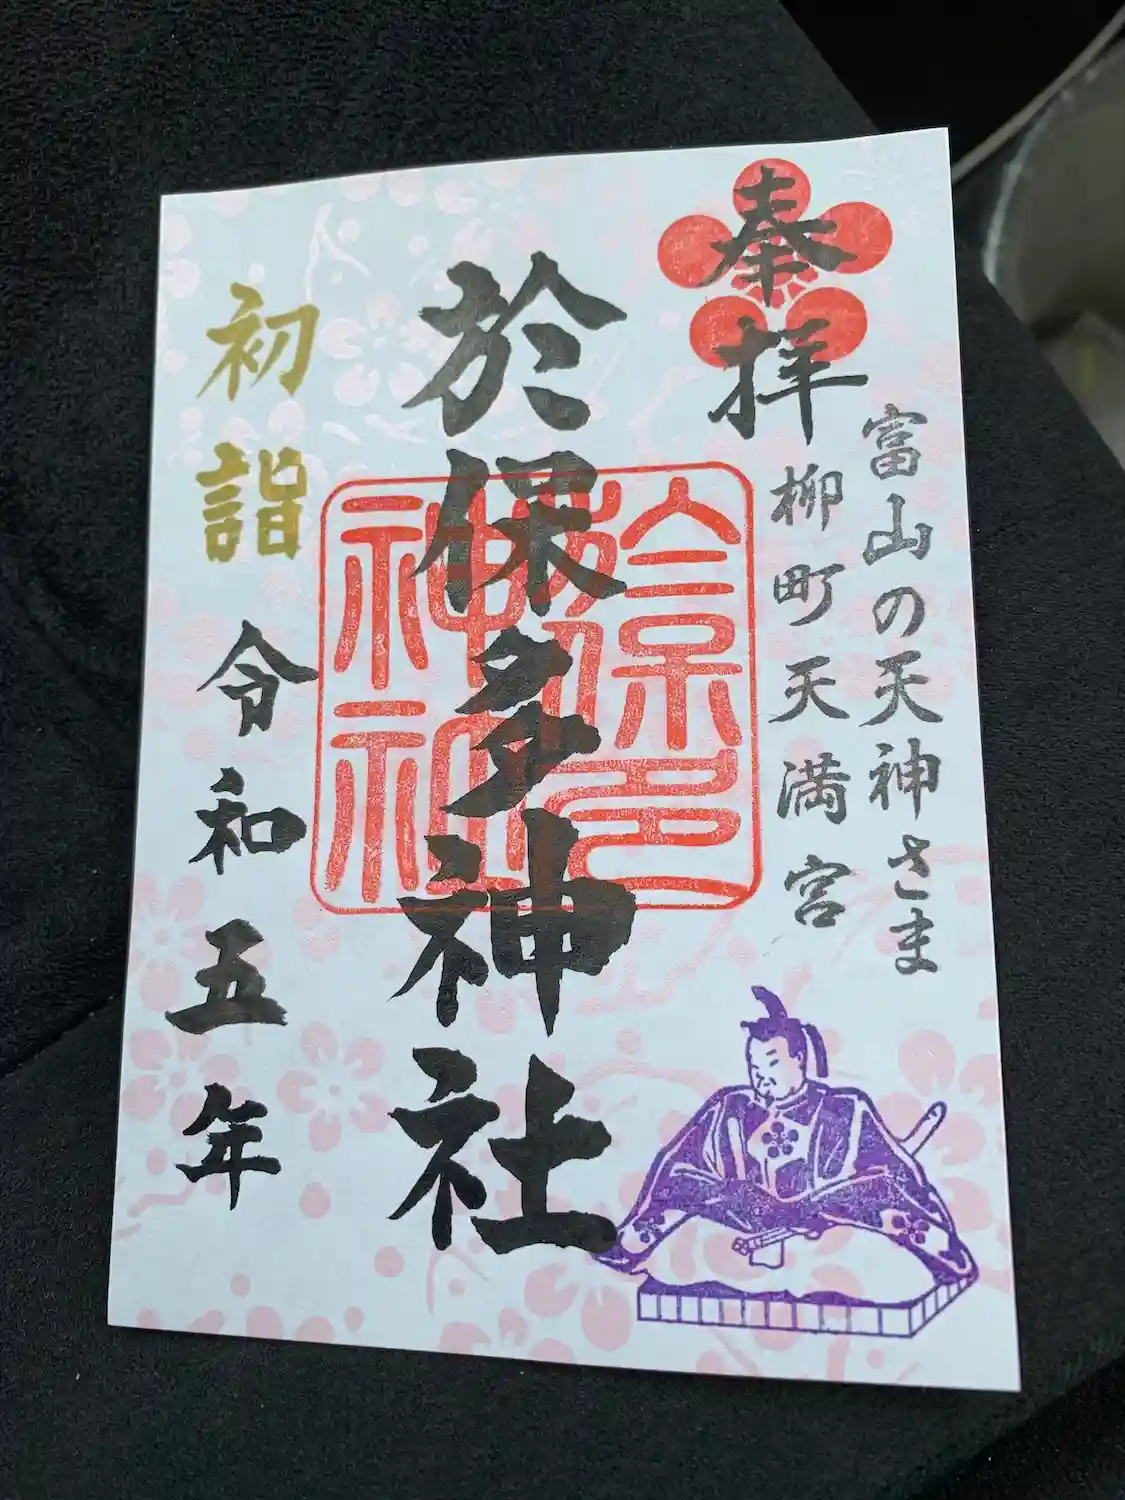 奉拝
富山の天神さま
柳町天満宮
於保多神社
於保多
神社
初詣
令和五年